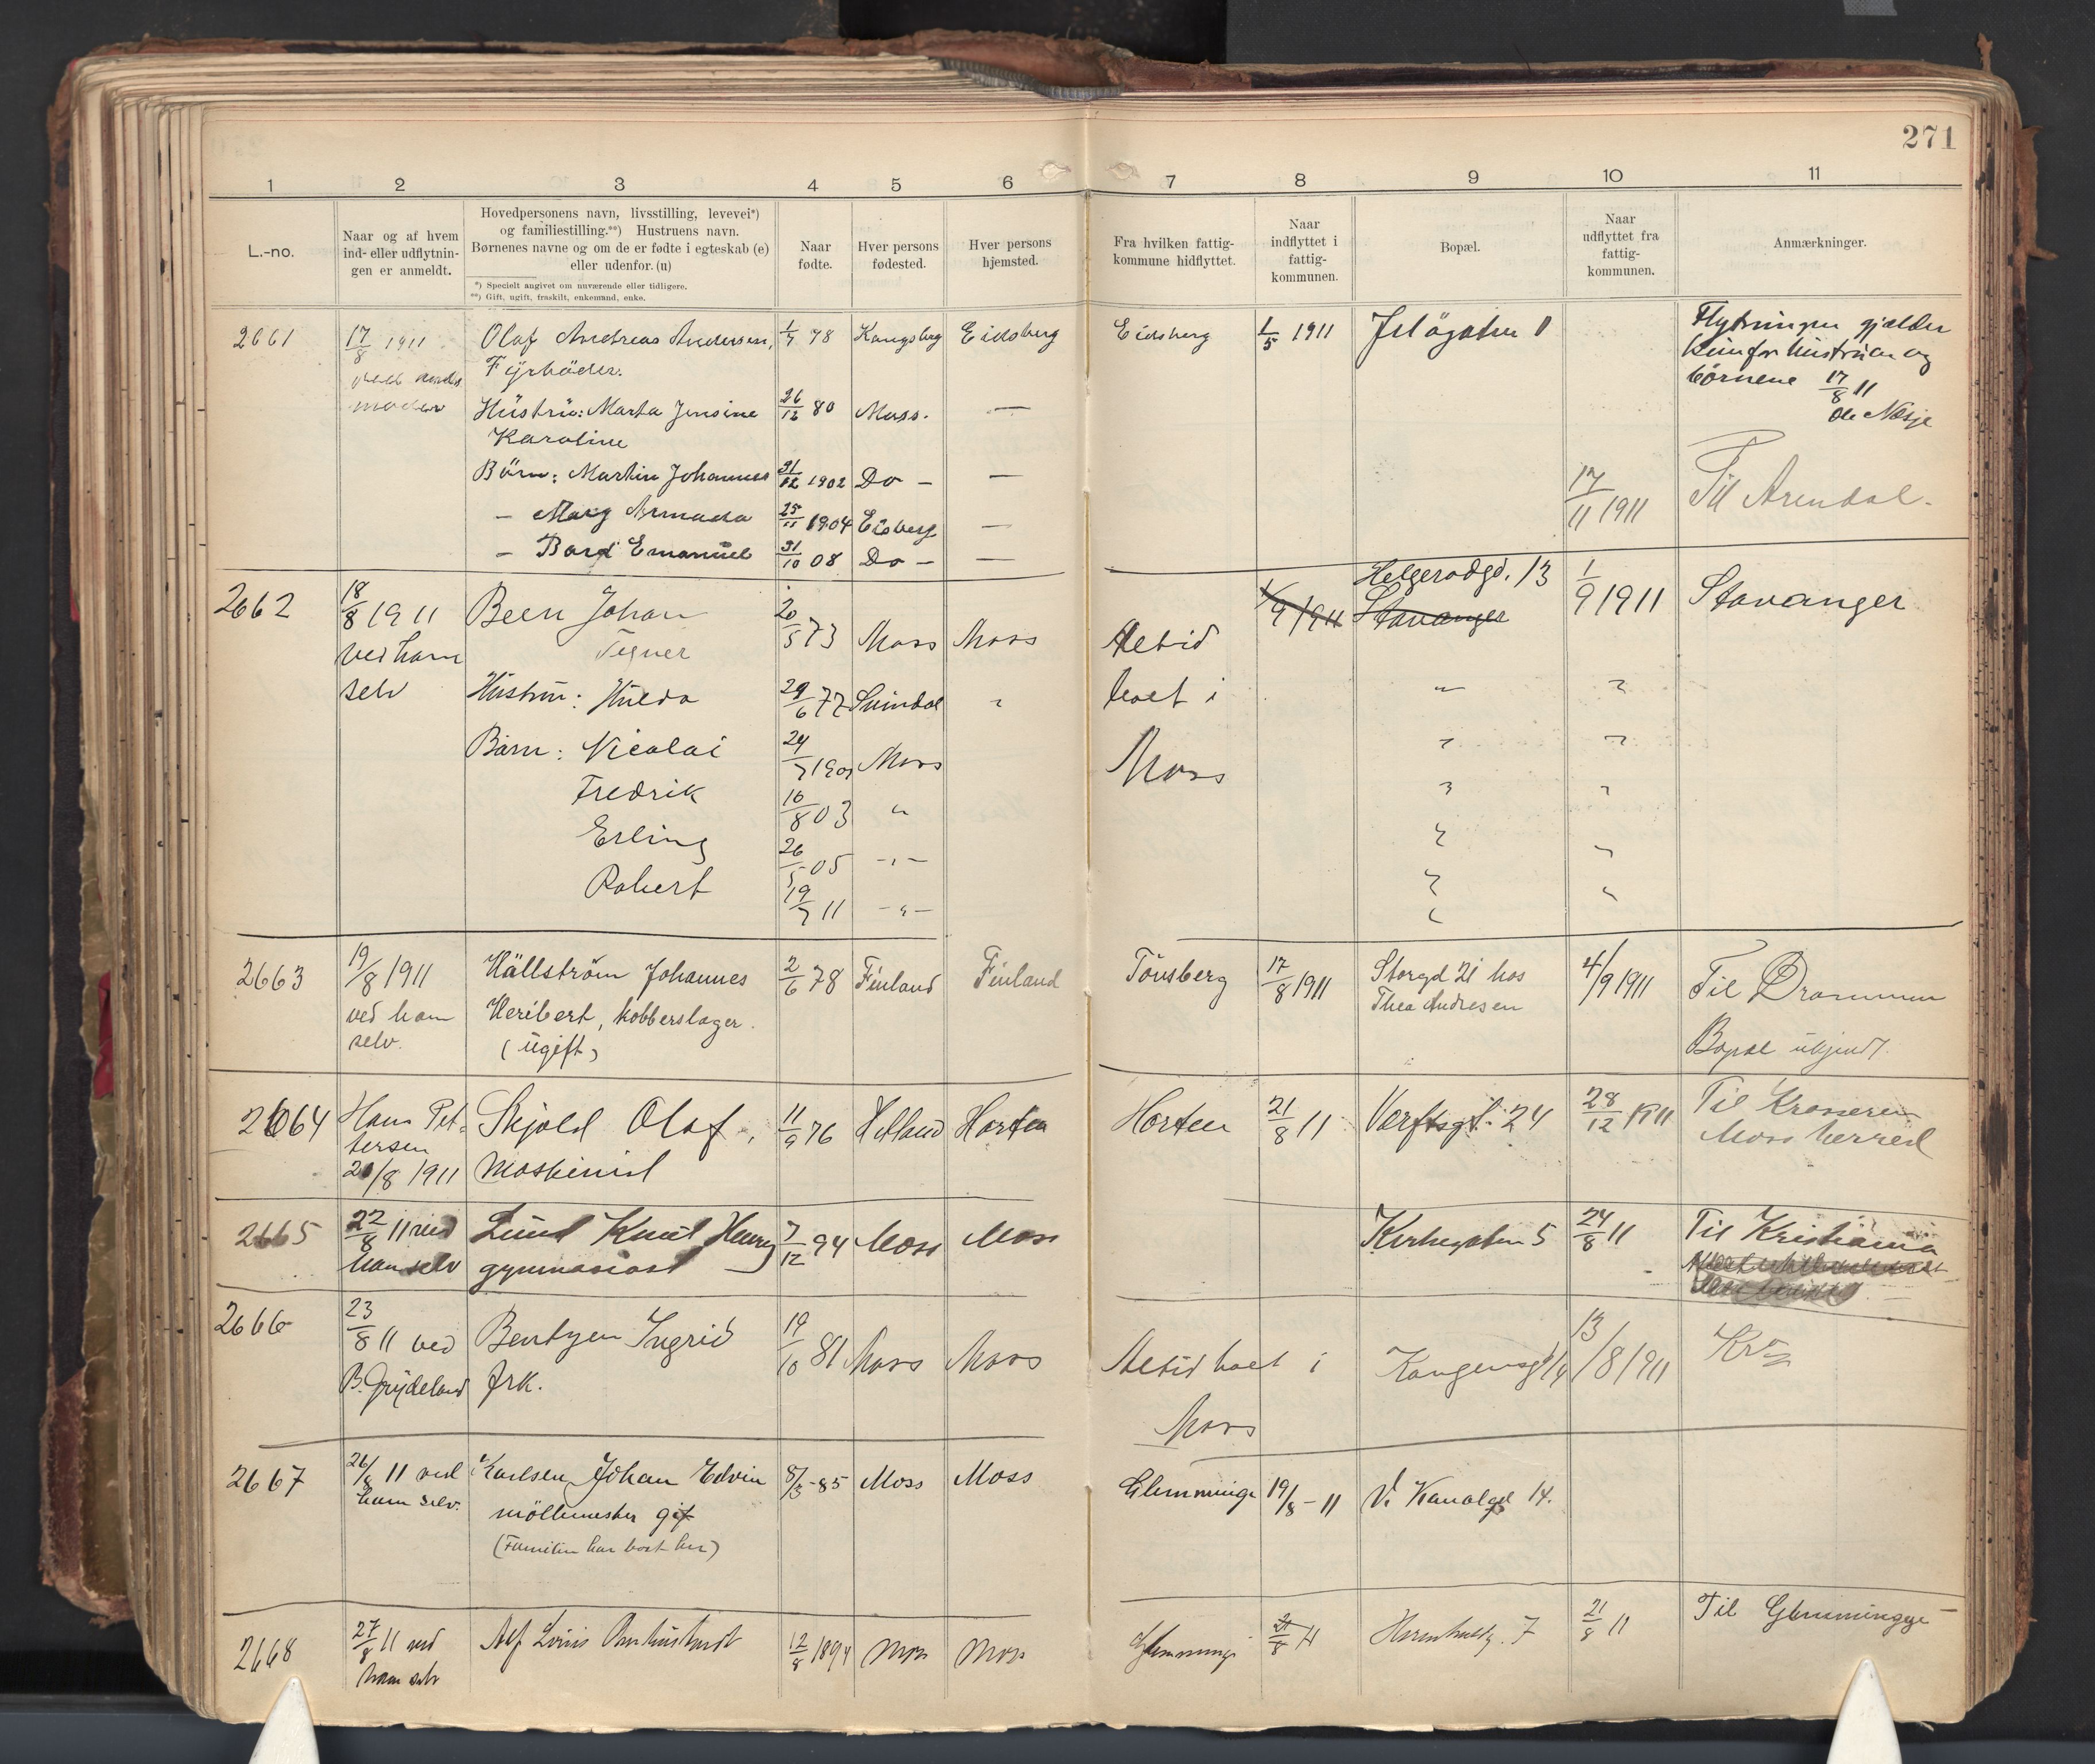 271
1 2 3 4 5 6 7 8 9 10 11
L.-no.
Naar og af hvem
ind- eller udflytnin-
gen er anmeldt.
Hovedpersonens navn, livsstilling, levevei*)
og familiestilling.**) Hustruens navn.
Børnenes navne og om de er fødte i egteskab (e)
eller udenfor. (u)
*) Specielt angivet om nuværende eller tidligere.
**) Gift, ugift, fraskilt, enkemand, enke.
Naar
fødte.
Hver persons
fødested.
Hver persons
hjemsted.
Fra hvilken fattig-
kommune hidflyttet.
Naar
indflyttet i
fattig-
kommunen.
Bopæl.
Naar
udflyttet fra
fattig-
kommunen.
Anmærkninger.
2661 17/8 1911 Olaf Andreas Andersen, 78 Kongsberg Eidsberg Eidsberg 1/5 1911 Jeløgaten Flytningen gjælder
Fyrbøder. kun for hustruen og
børnene 17/8 11
Hustru: Marta Jensine 26/12 80 Moss. —
Karoline
Børn: Martin Johannes 31/12 1902 Do — — 17/11 1911 Til Arendal.
— 25/11 1904 Eidberg —
— Emanuel 31/10 08 Do — —
2662 18/8 1911 Been Johan 20/5 73 Moss Moss Altid 1/9 1911 Helgerødgd. 13 1/9 1911 Stavanger
ved ham Stavanger
selv Hustru: Hulda 29/6 77 Svindal " boet i
Barn: Nicolai 24/7 1901 Moss Moss
Fredrik 16/8 03 "
Erling 26/5 05 -"-
Robert 19/7 11 -"-
2663 19/8 1911 Hällström Johannes 2/6 78 Finland Finland Tönsberg 17/8 1911 Storgd 21 hos 4/9 1911 Til Drammen
ved ham Heribert, kobberslager. Thea Andresen
selv. (ugift) Bopæl ukjendt.
2664 Hans Pet- Skjold Olaf, 11/9 76 Horten Horten 21/8 11 Værftsgt. 24 28/12 1911 Til Krosseren
tersen Moss herred
20/8 1911 Maskinist
2665 22/8 11 ved Lund Knut Henry 7/12 94 Moss Moss Kirkegaten 5 24/8 11 Til Kristiania
ham selv gymnasiast
2666 23/8 11 ved Bentzen Ingrid 19/10 81 Moss Moss Altid boet i Kongensgt 13/8 1911 Kra
B. Grydeland frk. Moss
2667 26/8 11 ved Karlsen Johan Edvin 8/3-85 Moss Moss Glemminge 19/8-11 V. Kanalgd 14.
ham selv. möllemester gift
(Familien har boet her)
2668 27/8 11 ved Alf 12/8 1894 Moss Moss Glemminge 11 7 21/8 11 Til Glemminge
ham selv